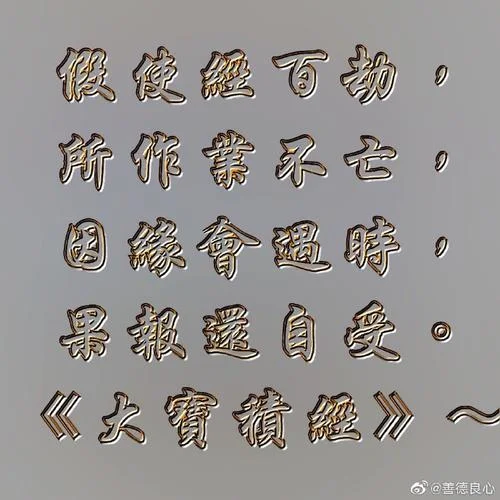 假使經百劫，
所作業不亡，
因緣會遇時，
果報還自受。
《大寶積經》～
@善德良心